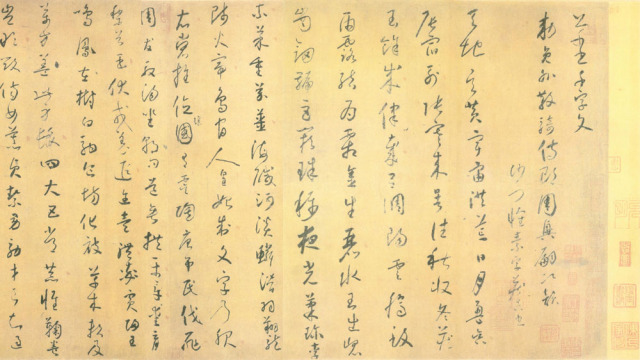 千字文
敕員外散騎侍郎周興嗣次韻
沙門懷素
天地玄黃宇宙洪荒日月盈昃
辰宿列張寒來暑往秋收冬藏
閏餘成歲律呂調陽雲騰致
雨露結為霜金生麗水玉出崐
崗劍號巨闕珠稱夜光菓珍李
柰菜重芥薑海鹹河淡鱗潛羽翔龍
師火帝鳥官人皇始制文字乃服
衣裳推位國有虞陶唐弔民伐罪
周發殷湯坐朝問道垂拱平章愛育
黎首臣伏戎羌遐邇壹體率賓歸王
鳴鳳在樹白駒食場化被草木賴及
萬方蓋此身髮四大五常恭惟鞠養
豈敢毀傷女慕貞絜男効才良知過